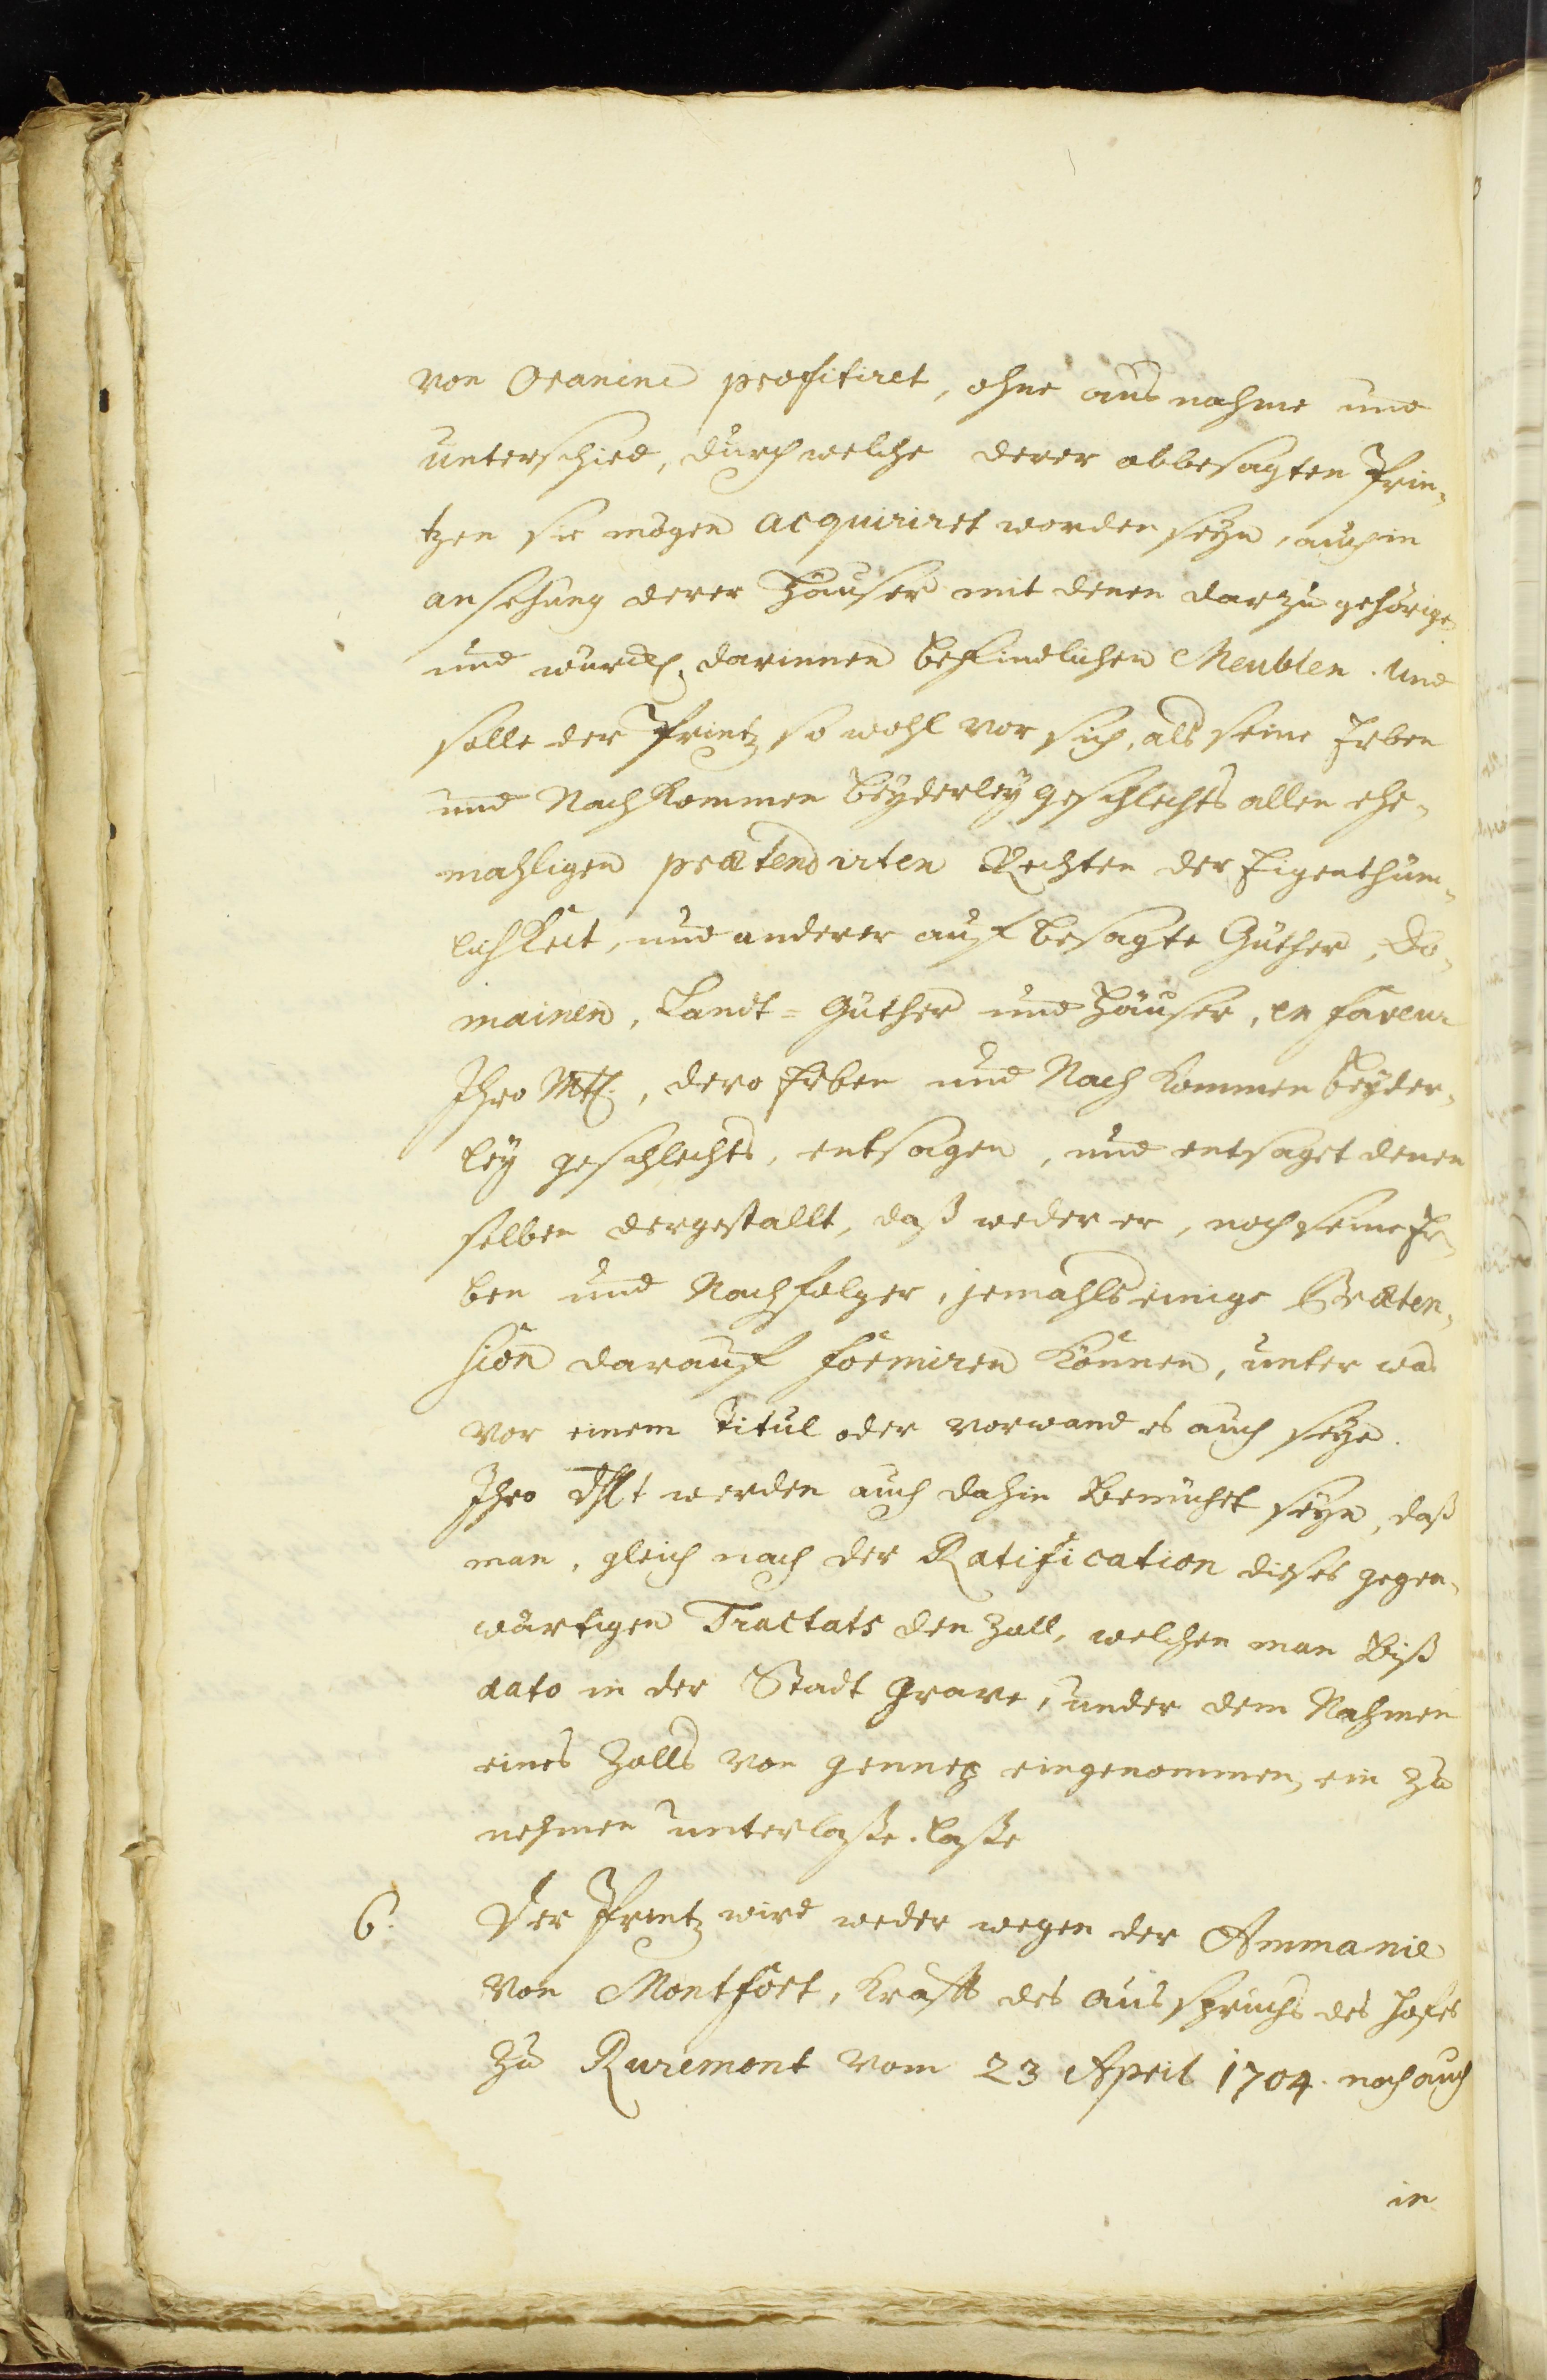 von Oranine profitiret, ohne ausnahme und
unterschied, durch welche derer obbesagten Prin-
tzen sie mögen acquiriret worden seyn, auch in
ansehung derer Häuser mit denen darzu gehörige
und würckl. darinnen befindlichen Meublen. Und
solle der Printz so wohl vor sich, als seine Erben
und Nachkommen beyderley geschlechts allen ehe-
mahligen prætendirten Rechten der Eigenthüm-
lichkeit, und anderer auf besagte Güther, Do-
mainen, Landt=Güther und Häuser, en faveur
Ihro Mtt., dero Erben und Nachkommen beyder-
ley geschlechts, entsagen, und entsaget denen
selben dergestallt, daß weder er, noch seine Er-
ben und Nachfolger, jemahls einige Præten-
sion darauf formiren können, unter was
vor einem Titul oder vorwand es auch seye.
Ihro Mt werden auch dahin bemühet seyn, daß
man, gleich nach der Ratification dieses gegen-
wärtigen Tractats den Zoll, welchen man biß
dato in der Stadt Grave, under dem Nahmen
eines Zolls von Gennep eingenommen, ein zu
nehmen unterlaße. laße
6. Der Printz wird weder wegen der Ammanie
von Montfort, krafft des ausspruchs des Hofes
zu Ruremont vom 23 April 1704. noch auch
in